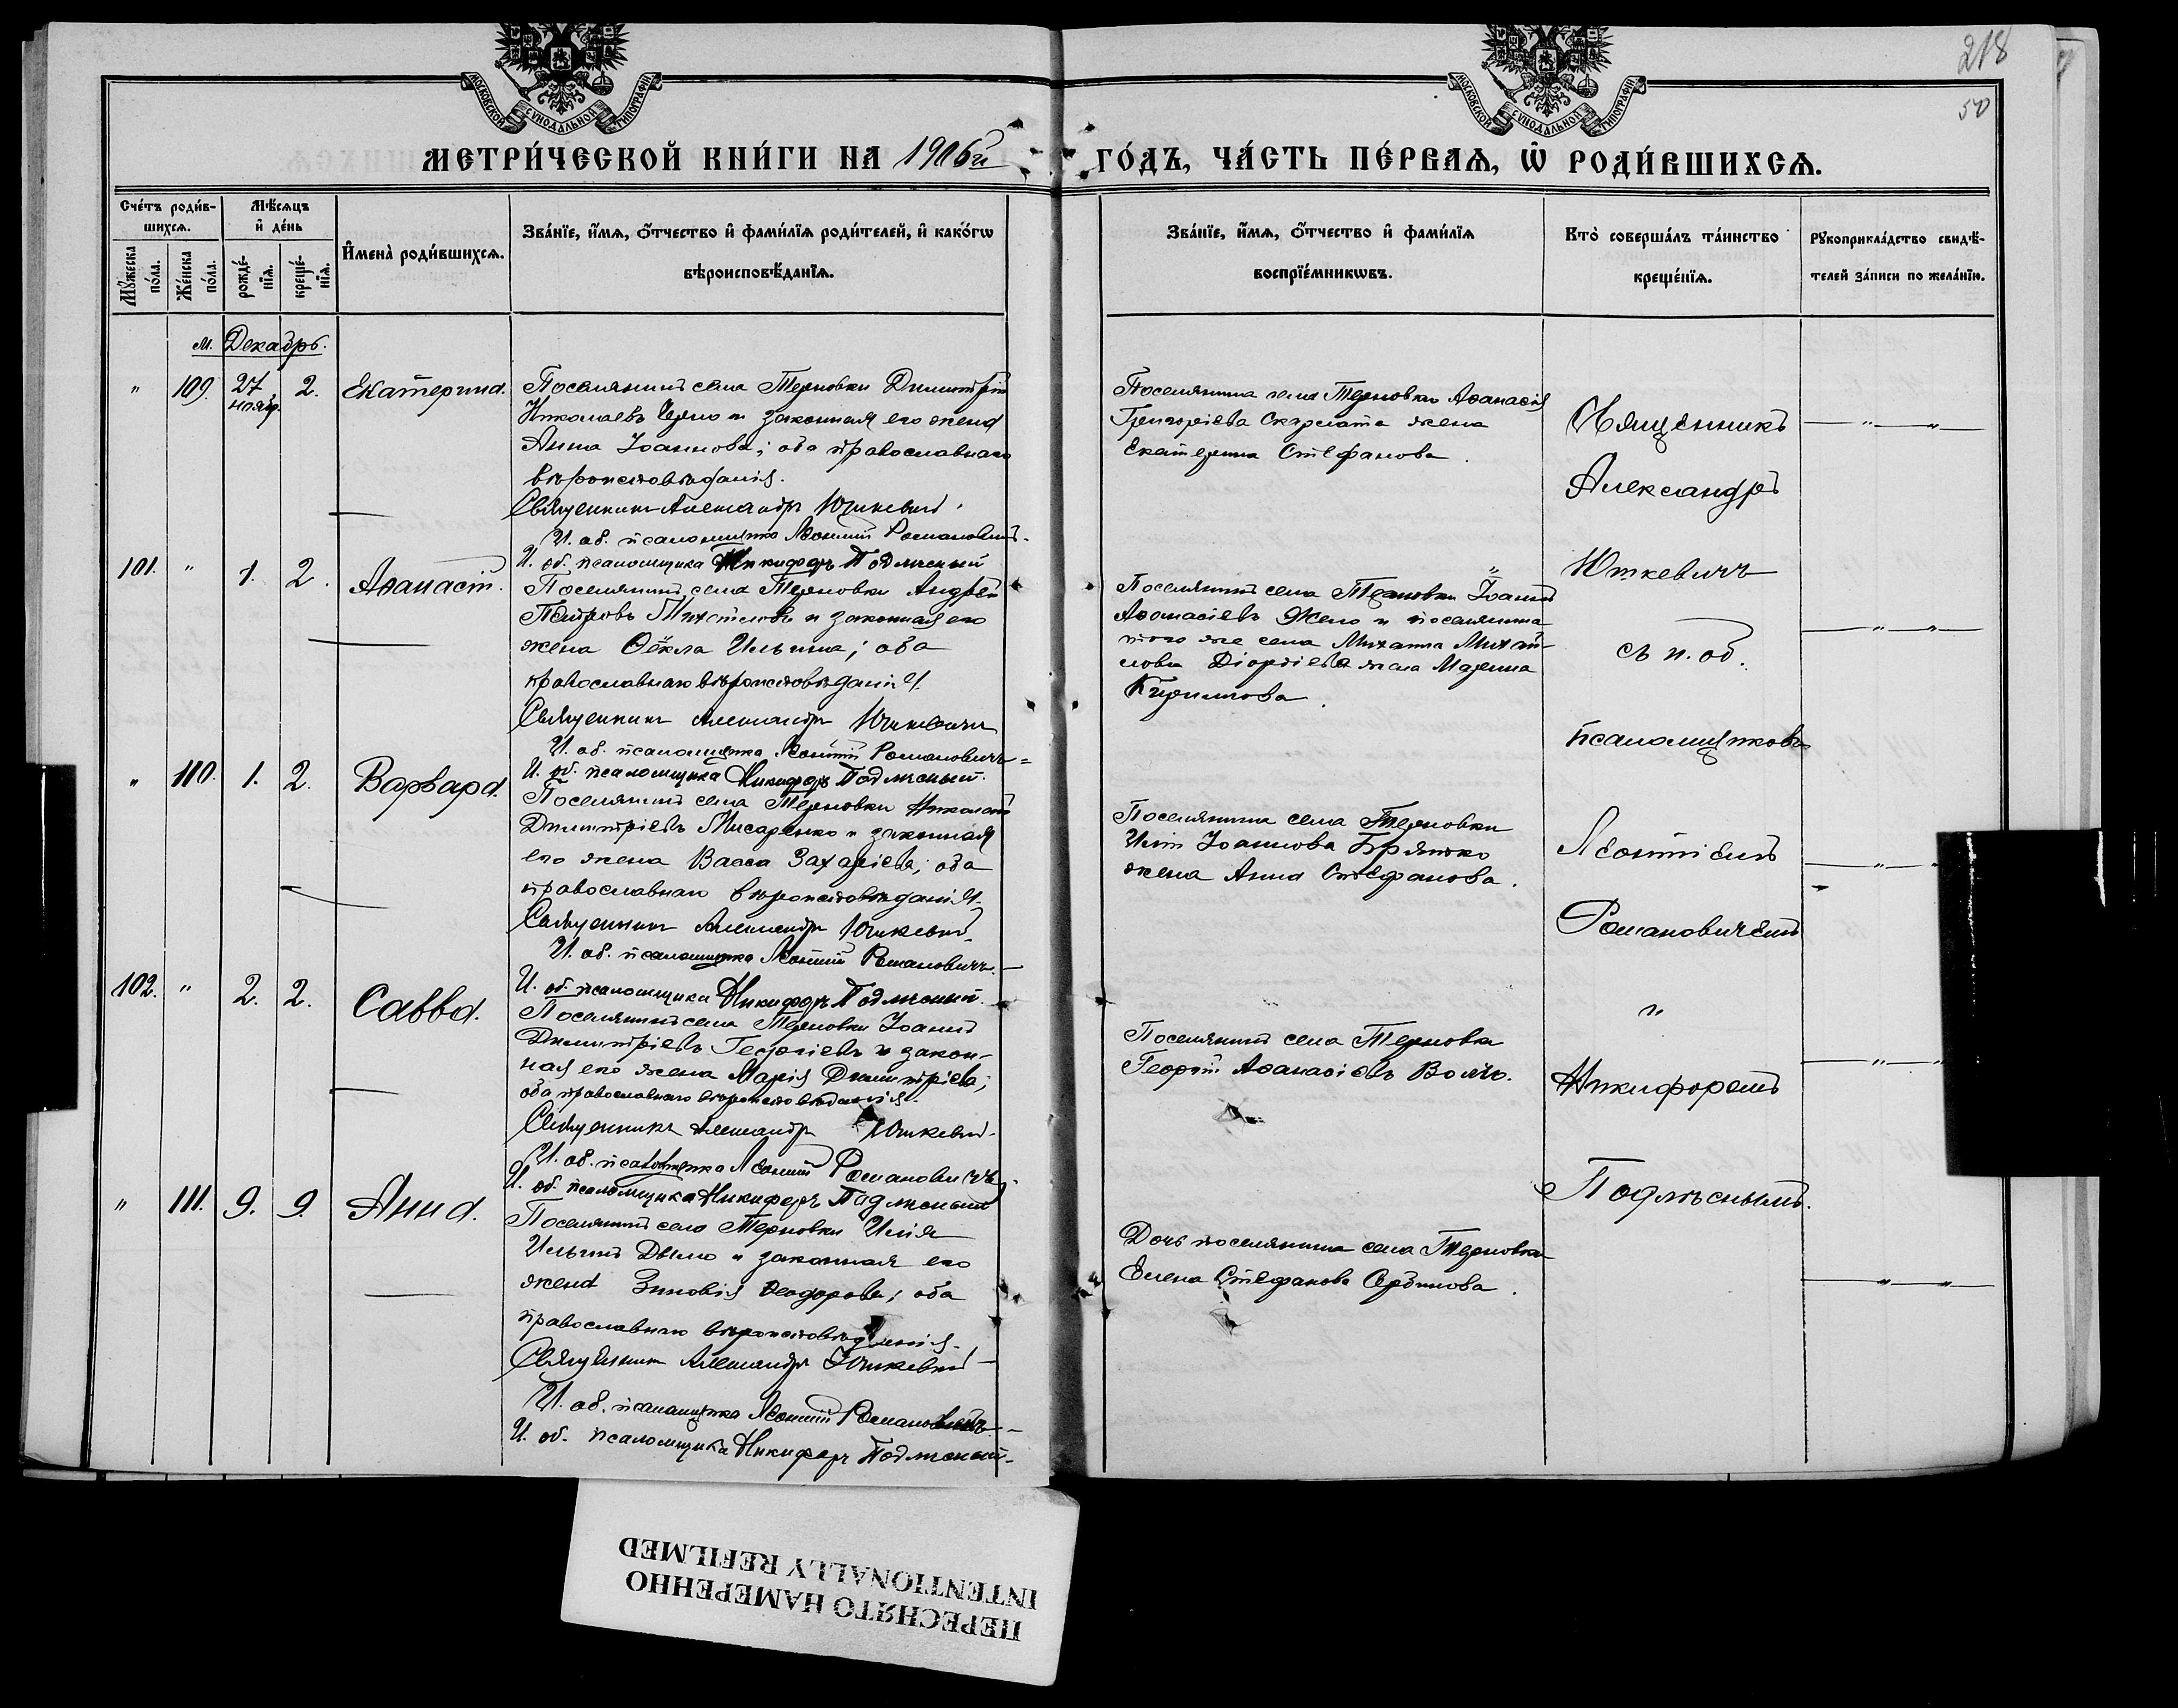 МОСКОВСКОЙ СУНОДАЛЬНОЙ ТИПОГРАФІИ
МОСКОВСКОЙ СУНОДАЛЬНОЙ ТИПОГРАФІИ
218
50
МЕТРИ́ЧЕСКОЙ КНИ́ГИ НА 1906й
ГО́ДЪ, ЧА́СТЬ ПЕ́РВАѦ, Ѽ РОДИ́ВШИХСѦ.
Сче́тъ роди́в-
шихсѧ.
Мꙋ́жеска по́ла.
Же́нска по́ла.
Мѣ́сѧцъ и҆ де́нь
рожде́-нїѧ.
креще́-нїѧ.
И҆мена̀ роди́вшихсѧ.
Зва́нїе, и҆́мѧ, ѻ҆́тчество и҆ фами́лїѧ роди́телей, и҆ како́гѡ
вѣроисповѣ́данїѧ.
Зва́нїе, и҆́мѧ, ѻ҆́тчество и҆ фами́лїѧ
воспрїе́мникѡвъ.
Кто̀ соверша́лъ та́инство
креще́нїѧ.
Рꙋкоприкла́дство свидѣ́-
телей за́писи по жела́нїю.
м. Декабрь.
" 109. 27 нояб. 2. Екатерина.
Поселянинъ села Терновки Димитрій
Николаевъ Черно и законная его жена
Анна Іоаннова; оба православнаго
вѣроисповѣданія.
Священникъ Александръ Юшкевичъ.
И. об. псаломщика Леонтій Романовичъ.
И. об. псаломщика Никифоръ Подлѣсный
Поселянина села Терновки Аѳанасія
Григоріева Скарлата жена
Екатерина Стефанова.
101. " 1. 2. Аѳанасій.
Поселянинъ села Терновки Андрей
Петровъ и законная его
жена Ѳёкла Ильина; оба
православнаго вѣроисповѣданія.
Священникъ Александръ Юшкевичъ
И. об. псаломщика Леонтій Романовичъ
И. об. псаломщика Никифоръ Подлѣсный.
Поселянинъ села Терновки Іоаннъ
Аѳанасіевъ Жело и поселянина
того же села Михаила Михай-
лова жена Марина
Кириллова.
" 110. 1. 2. Варвара.
Поселянинъ села Терновки Николай
Димитріевъ Писаренко и законная
его жена Васса Захаріева; оба
православнаго вѣроисповѣданія.
Священникъ Александръ Юшкевичъ.
И. об. псаломщика Леонтій Романовичъ.
И. об. псаломщика Никифоръ Подлѣсный.
Поселянина села Терновки
Иліи Іоаннова Братко
жена Анна Стефанова.
102. " 2. 2. Савва.
Поселянинъ села Терновки Іоаннъ
Димитріевъ Георгіевъ и закон-
ная его жена Марія Димитріева;
оба православнаго вѣроисповѣданія.
Священникъ Александръ Юшкевичъ.
И. об. псаломщика Леонтій Романовичъ.
И. об. псаломщика Никифоръ Подлѣсный
Поселянинъ села Терновки
Георгій Аѳанасіевъ Волчо.
" 111. 9. 9. Анна.
Поселянинъ села Терновки Илія
Ильинъ Дымо и законная его
жена Зиновія Ѳеодорова; оба
православнаго вѣроисповѣданія.
Священникъ Александръ Юшкевичъ
И. об. псаломщика Леонтій Романовичъ
И. об. псаломщика Никифоръ Подлѣсный.
Дочь поселянина села Терновки
Елена Стефанова Сербинова.
Священникъ
Александръ
Юшкевичъ
съ и. об.
псаломщиковъ
Леонтіемъ
Романовичемъ
и
Никифоромъ
Подлѣснымъ.
ПЕРЕСНЯТО НАМЕРЕННО
INTENTIONALLY REFILMED